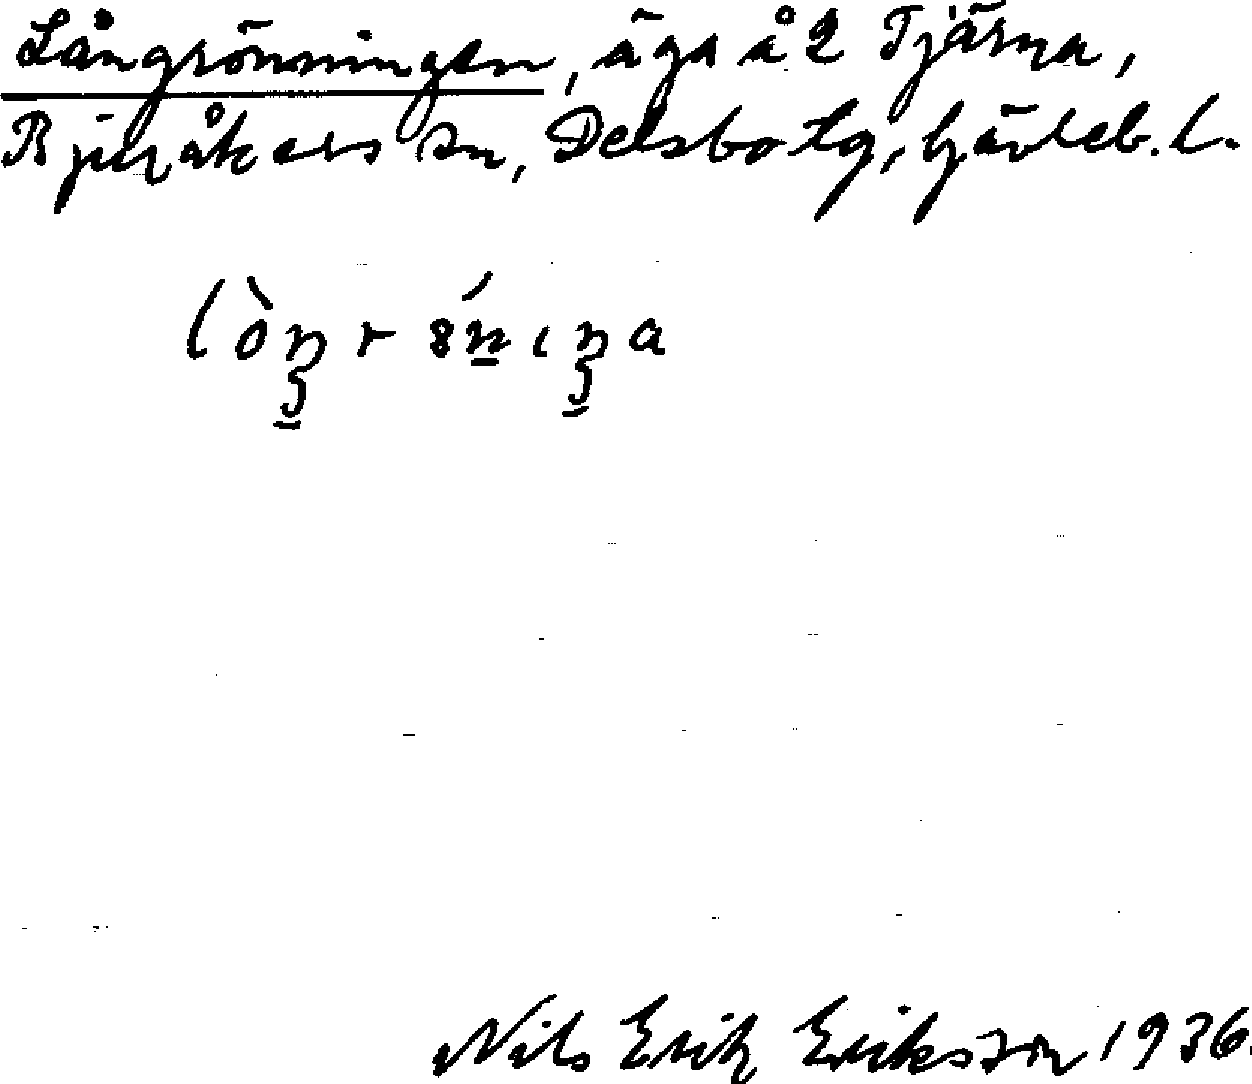 Långrönningen, äga å 2 Tjärna,
Bjuråkers sn, Delsbo tg, Gävleb. l.
lòŋrȣ́nıŋa
Nils Erik Eriksson 1936.